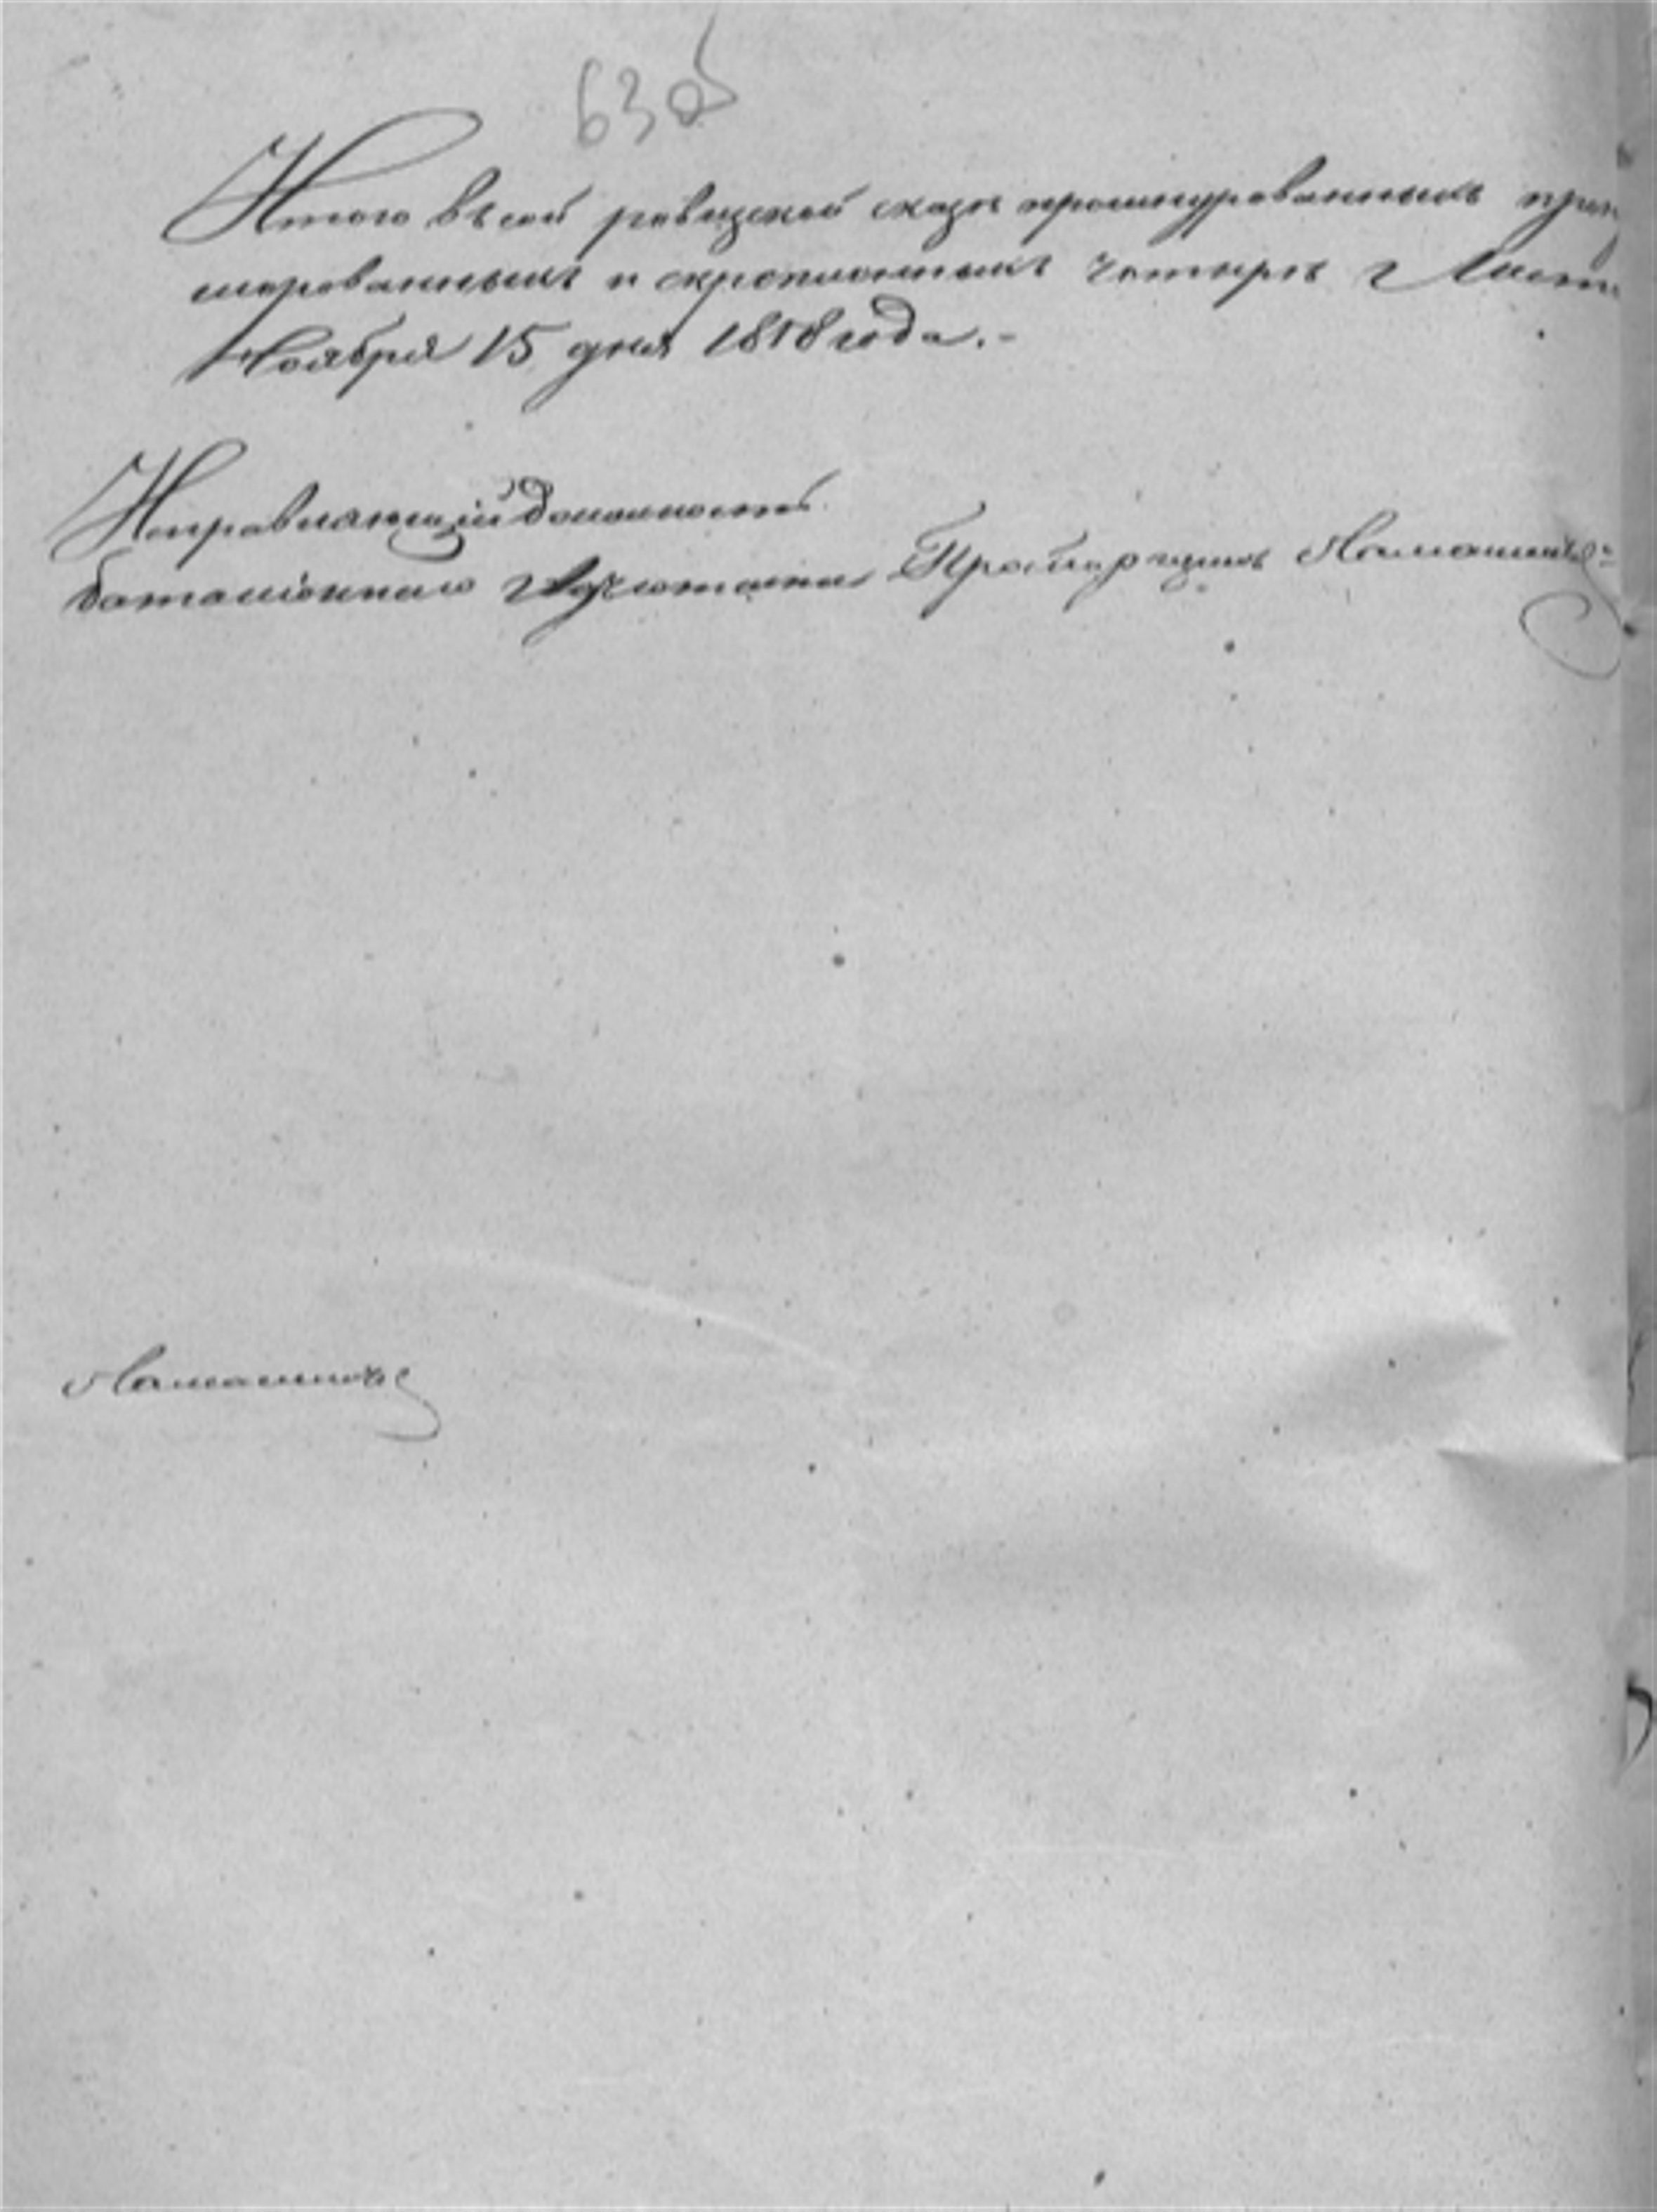 63 об
Итого въ сей ревизской сказке прошнурованныхъ прону
мерованныхъ и скрепленныхъ четыре листа
Ноября 15 дня 1858 года.-
Исправляющий должность
баталіоннаго Адъютанта Прапорщикъ